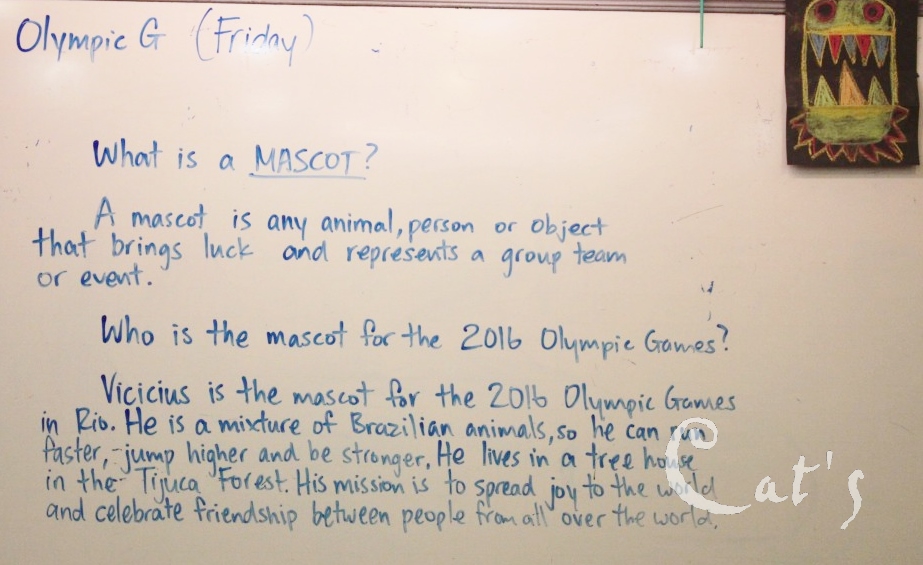 Olympic G (Friday)
What is a MASCOT?
A mascot is any animal, person or object
that brings luck and represents a group team
or event.
Who is the mascot for the 2016 Olympic Games?
Vicicius is the mascot for the 2016 Olympic Games
in Rio. He is a mixture of Brazilian animals, so he can run
faster, jump higher and be stronger. He lives in a tree house
in the Tijuca Forest. His mission is to spread joy to the world
and celebrate friendship between people from all over the world.
Cat's